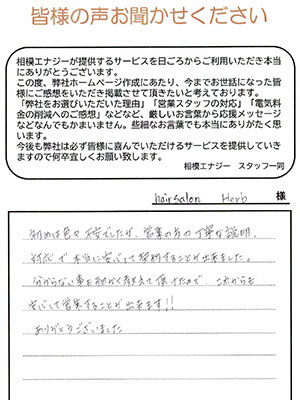 皆様の声お聞かせください
相模エナジーが提供するサービスを日ごろからご利用いただき本当
にありがとうございます。
この度、弊社ホームページ作成にあたり、今までお世話になった皆
様にご感想をいただき掲載させて頂きたいと考えております。
「弊社をお選びいただいた理由」「営業スタッフの対応」「電気料
金の削減へのご感想」などなど、厳しいお言葉から応援メッセージ
などなんでもかまいません。些細なお言葉でも本当にありがたく思
います。
今後も弊社は必ず皆様に喜んでいただけるサービスを提供していき
ますので何卒宜しくお願い致します。
相模エナジー スタッフ一同
hair salon Herb 様
初めは色々不安でしたが、営業の方の丁寧な説明、
対応で本当に安心して契約することが出来ました。
分からない事も細かく教えて頂けたので、これからも
安心して営業することが出来ます!!
ありがとうございました